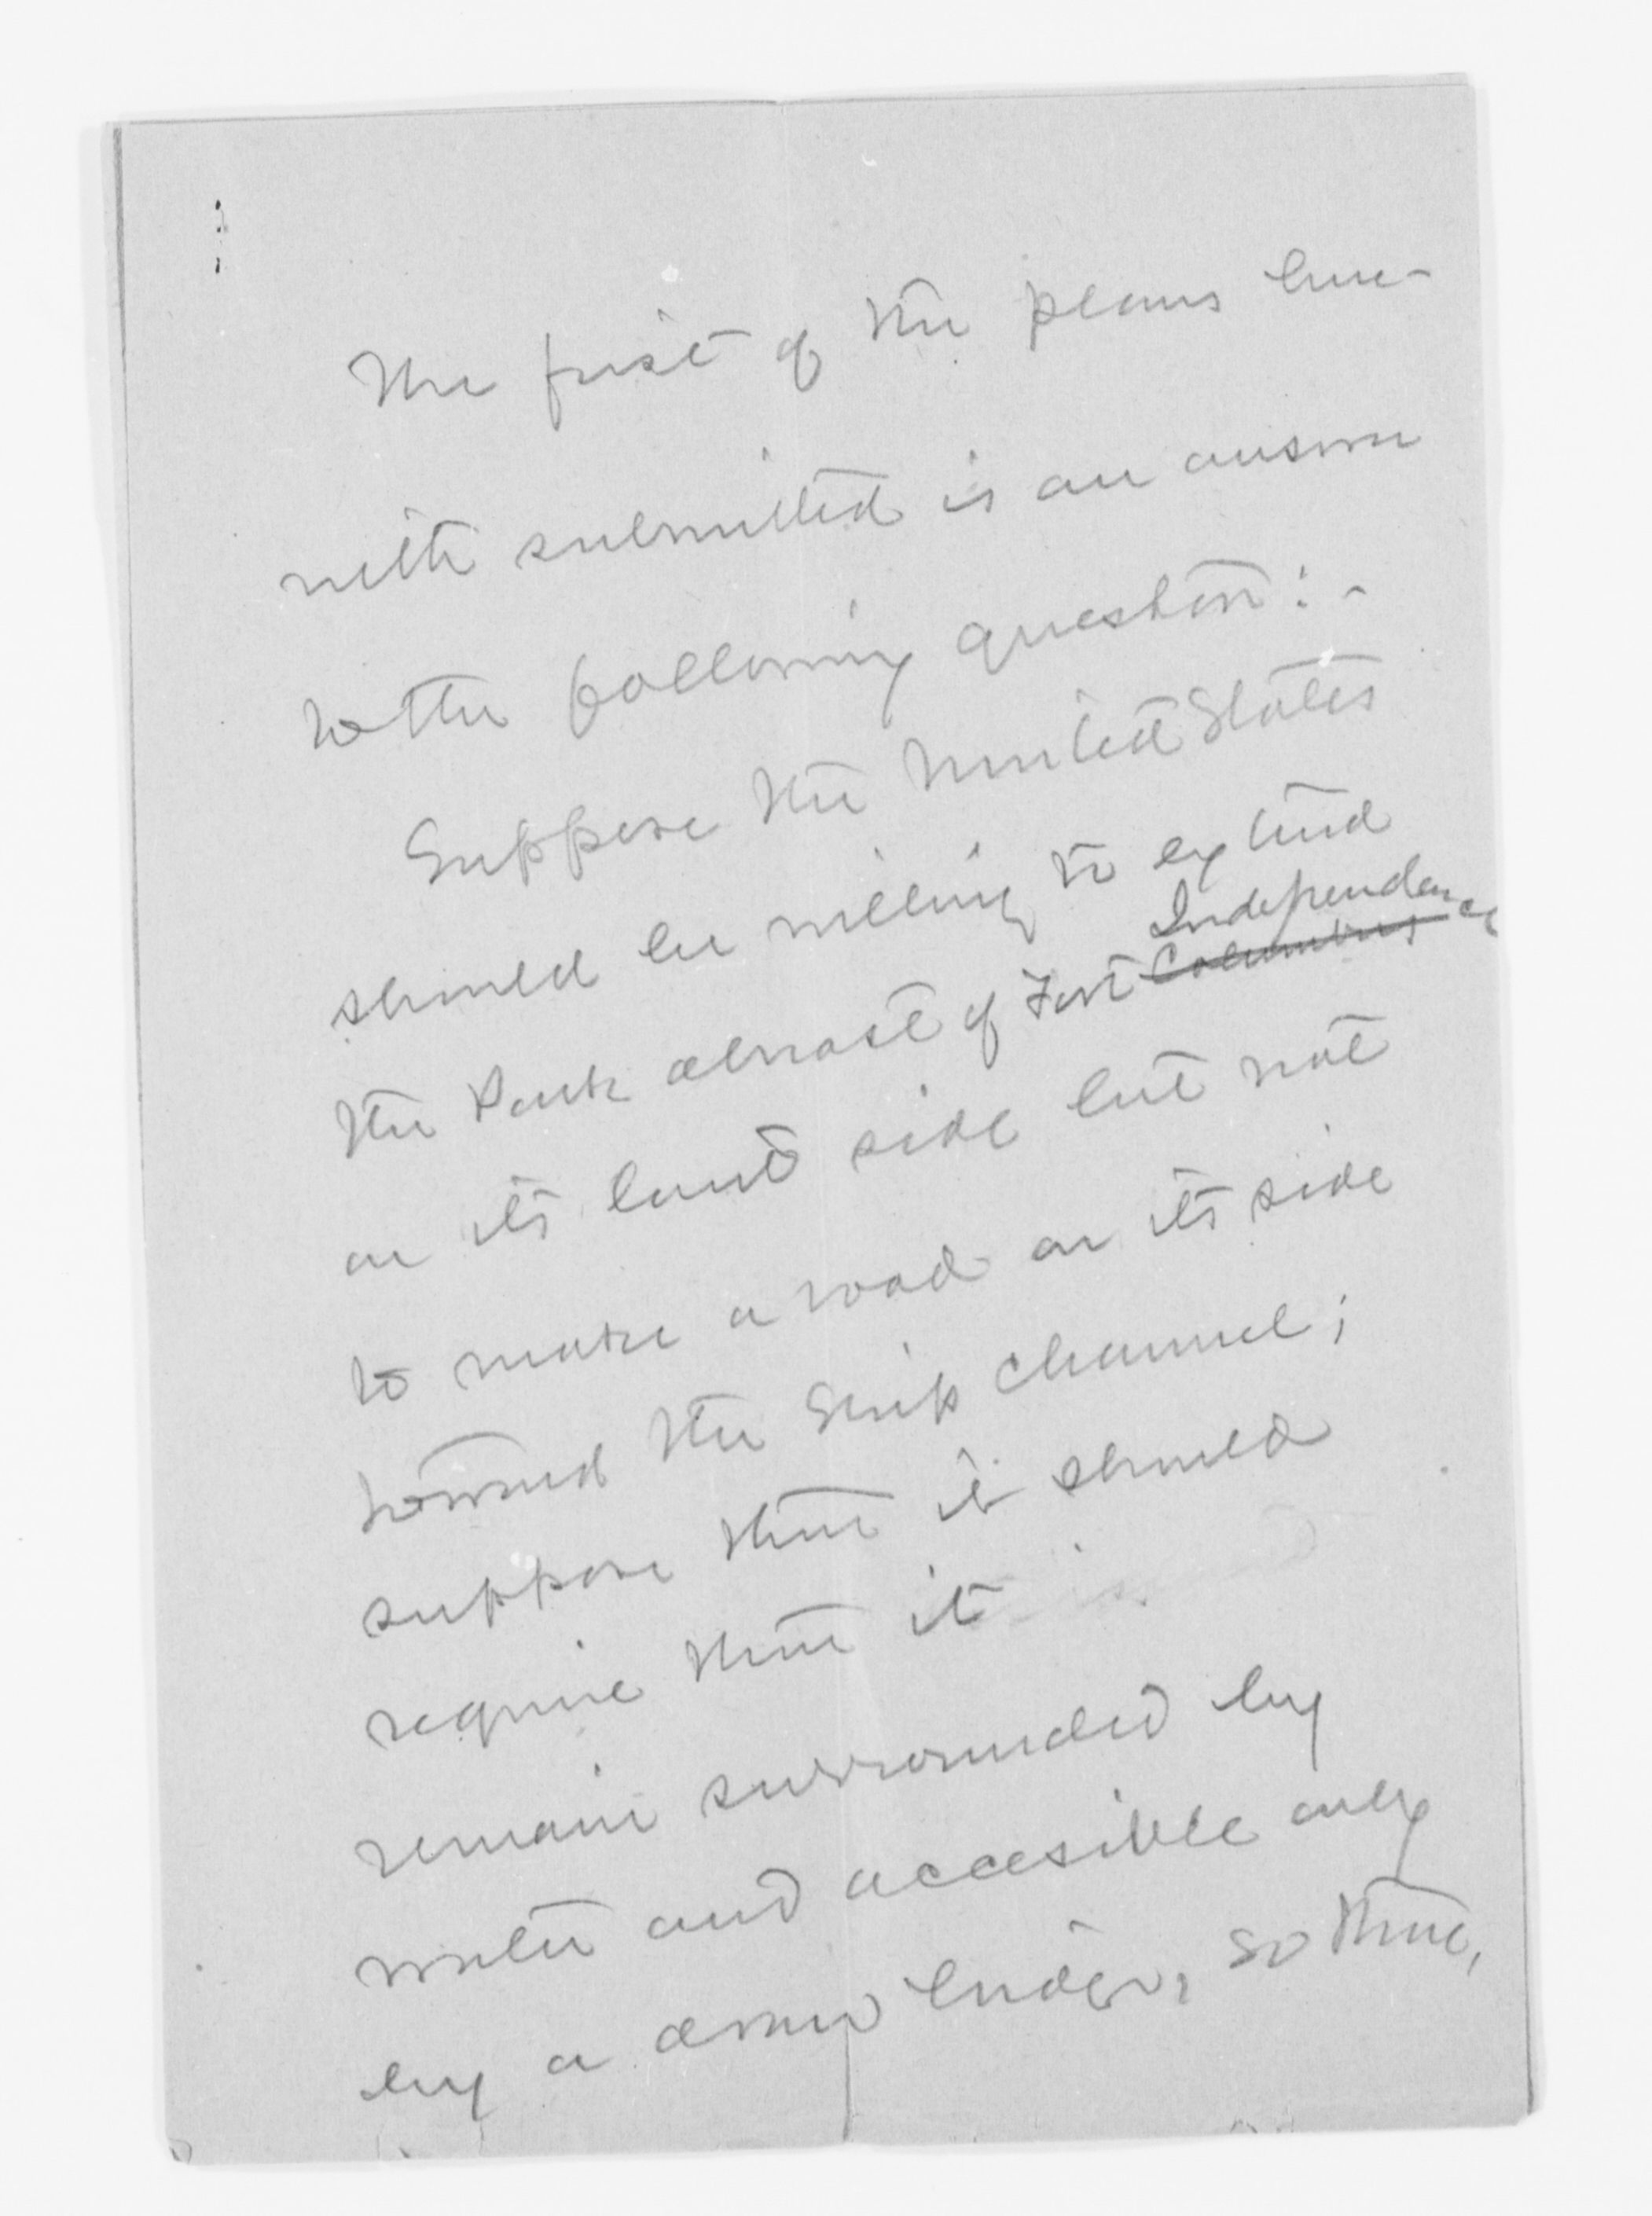 The first of the plans here-
with submitted is an answer
to the following question:-
Suppose the United States
should be willing to extend
Independence
the Park abreast of Fort Columbus
on its land side but not
to make a road on its side
toward the Ship channel;
suppose that it should
require that it
remain surrounded by
water and accesible only
by a draw bridge, so that,